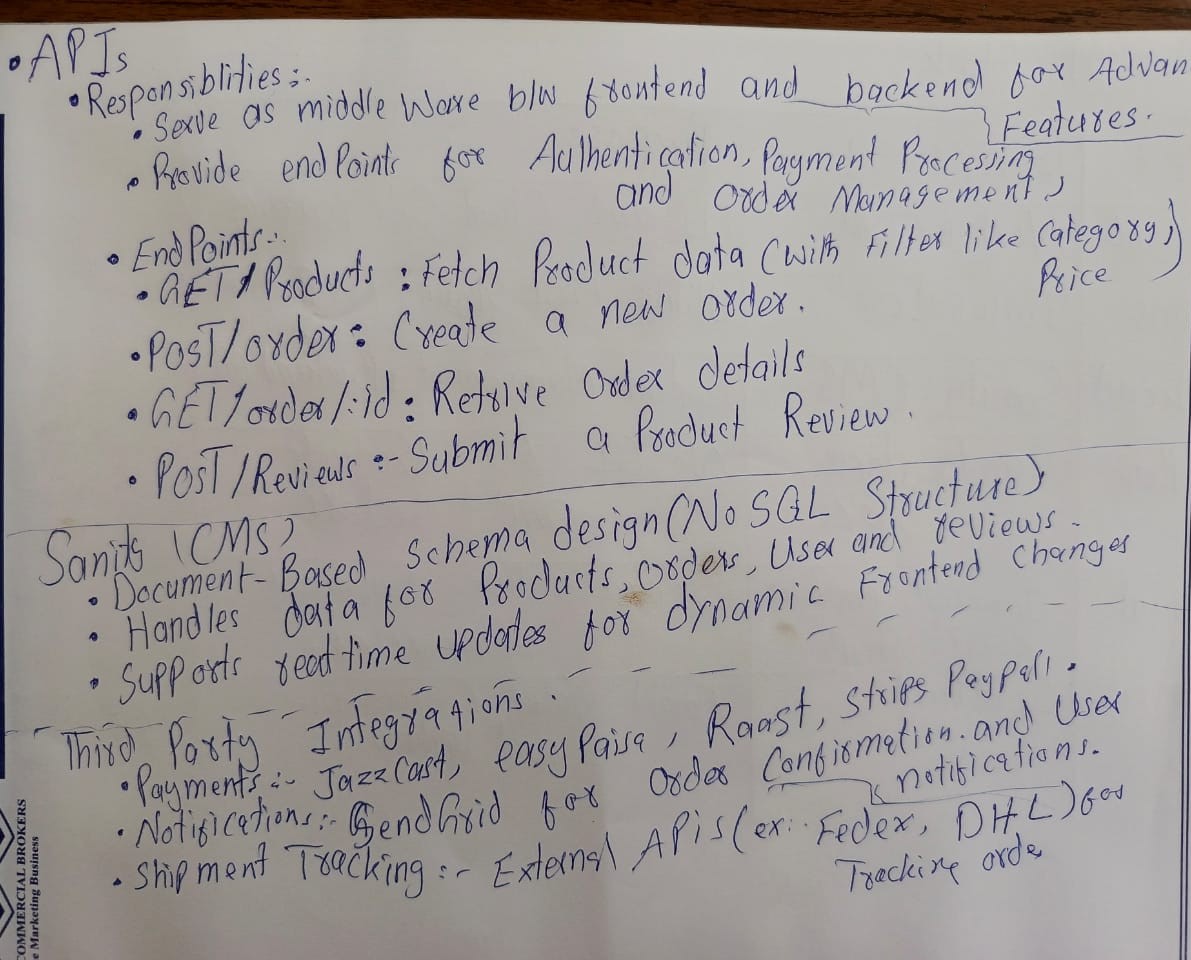 • APIs
• Responsiblities :-
• Serve as middle Ware b/w frontend and backend for Advan
Features.
• Provide end Points for Authentication, Payment Processing
and Order Management,
• End Points :-
• GET / Products : Fetch Product data (with Filter like Category,)
Price
• POST/order : Create a new order.
• GET/order/:id : Retrive Order details
• POST/Reviews :- Submit a Product Review.
Sanity (CMS)
• Document-Based Schema design (No SQL Structure)
• Handles data for Products, orders, User and reviews.
• Supports real time updates for dynamic Frontend Changes
Third Party Integrations.
• Payments :- Jazz Cast, easyPaisa, Raast, Strips Paypall.
• Notifications :- SendGrid for Order Confirmation. and User
notifications.
• Ship ment Tracking :- External APIs (ex:. Fedex, DHL) for
Tracking orde
COMMERCIAL BROKERS
e Marketing Business